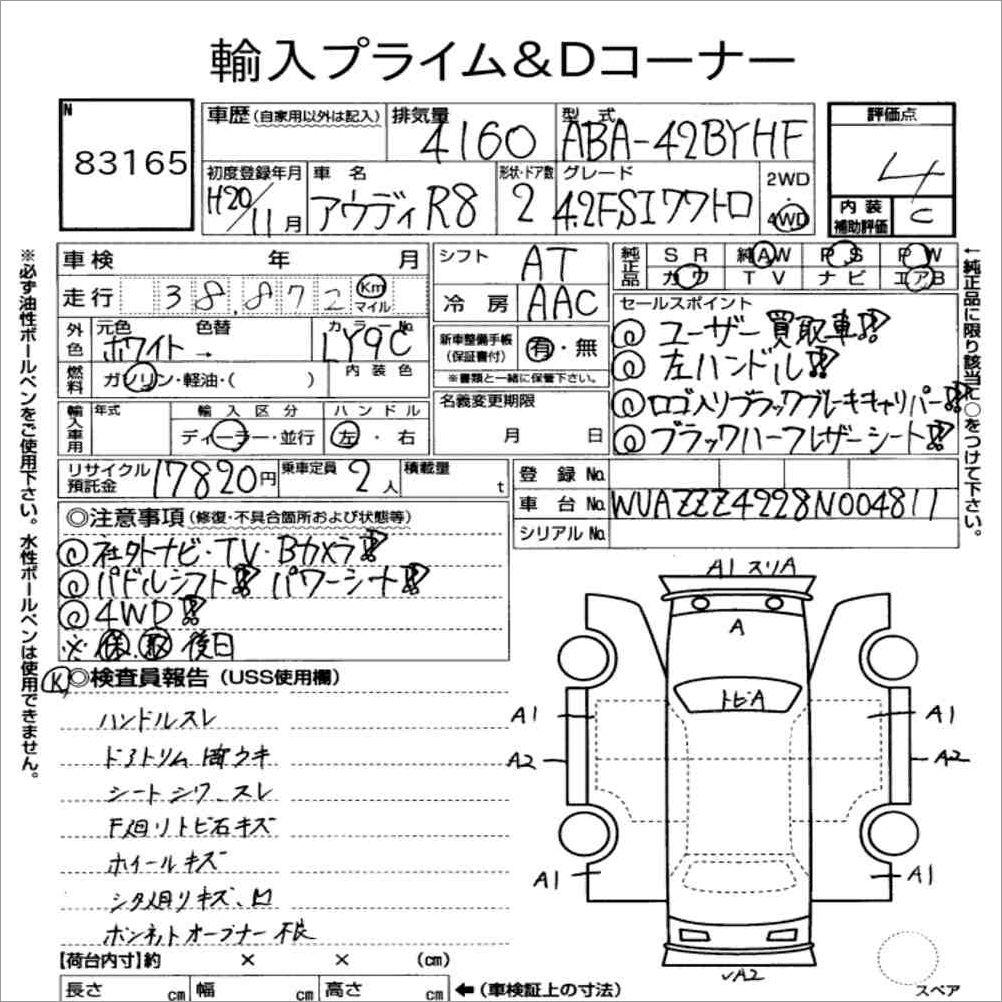 輸入プライム&Dコーナー
N
83165
車歴(自家用以外は記入)
排気量
4160
型 式
ABA-42BYHF
評価点
4
内装
補助評価
C
初度登録年月
H20/11月
車 名
アウディ R8
形状・ドア数
2
グレード
4.2FSIクワトロ
2WD
・
4WD
車検 年 月
走行 38,872 Km マイル
外色
元色 色替
ホワイト →
カラーNo
LY9C
燃料
ガソリン・軽油・( )
内装色
輸入車用
年式
輸入区分
ディーラー・並行
ハンドル
左・右
シフト AT
冷房 AAC
新車整備手帳
(保証書付)
有・無
※書類と一緒に保管下さい。
名義変更期限
月 日
純正品
SR 純AW PS PW
カワ TV ナビ エアB
セールスポイント
◎ユーザー買取車!!
◎左ハンドル!!
◎ロゴ入りブラックブレーキキャリパー!!
◎ブラックハーフレザーシート!!
リサイクル
預託金
17820円
乗車定員 2人
積載量 t
登録No.
車台No. WUAZZZ4228N004811
シリアルNo.
◎注意事項(修復・不具合箇所および状態等)
◎社外ナビ・TV・Bカメラ!!
◎パドルシフト!! パワーシート!!
◎4WD!!
※保.取 後日
K
◎検査員報告(USS使用欄)
ハンドルスレ
ドアトリム 両ウキ
シートシワ、スレ
F廻リトビ石キズ
ホイールキズ
シタ廻リキズ、凹
ボンネットオープナー不良
【荷台内寸】約 × × (cm)
長さ cm 幅 cm 高さ cm ←(車検証上の寸法)
※必ず油性ボールペンをご使用下さい。水性ボールペンは使用できません。
←純正品に限り該当に○をつけて下さい。
A1 スリA
A
トビA
A1
A1
A2
A2
A1
A1
A2
スペア